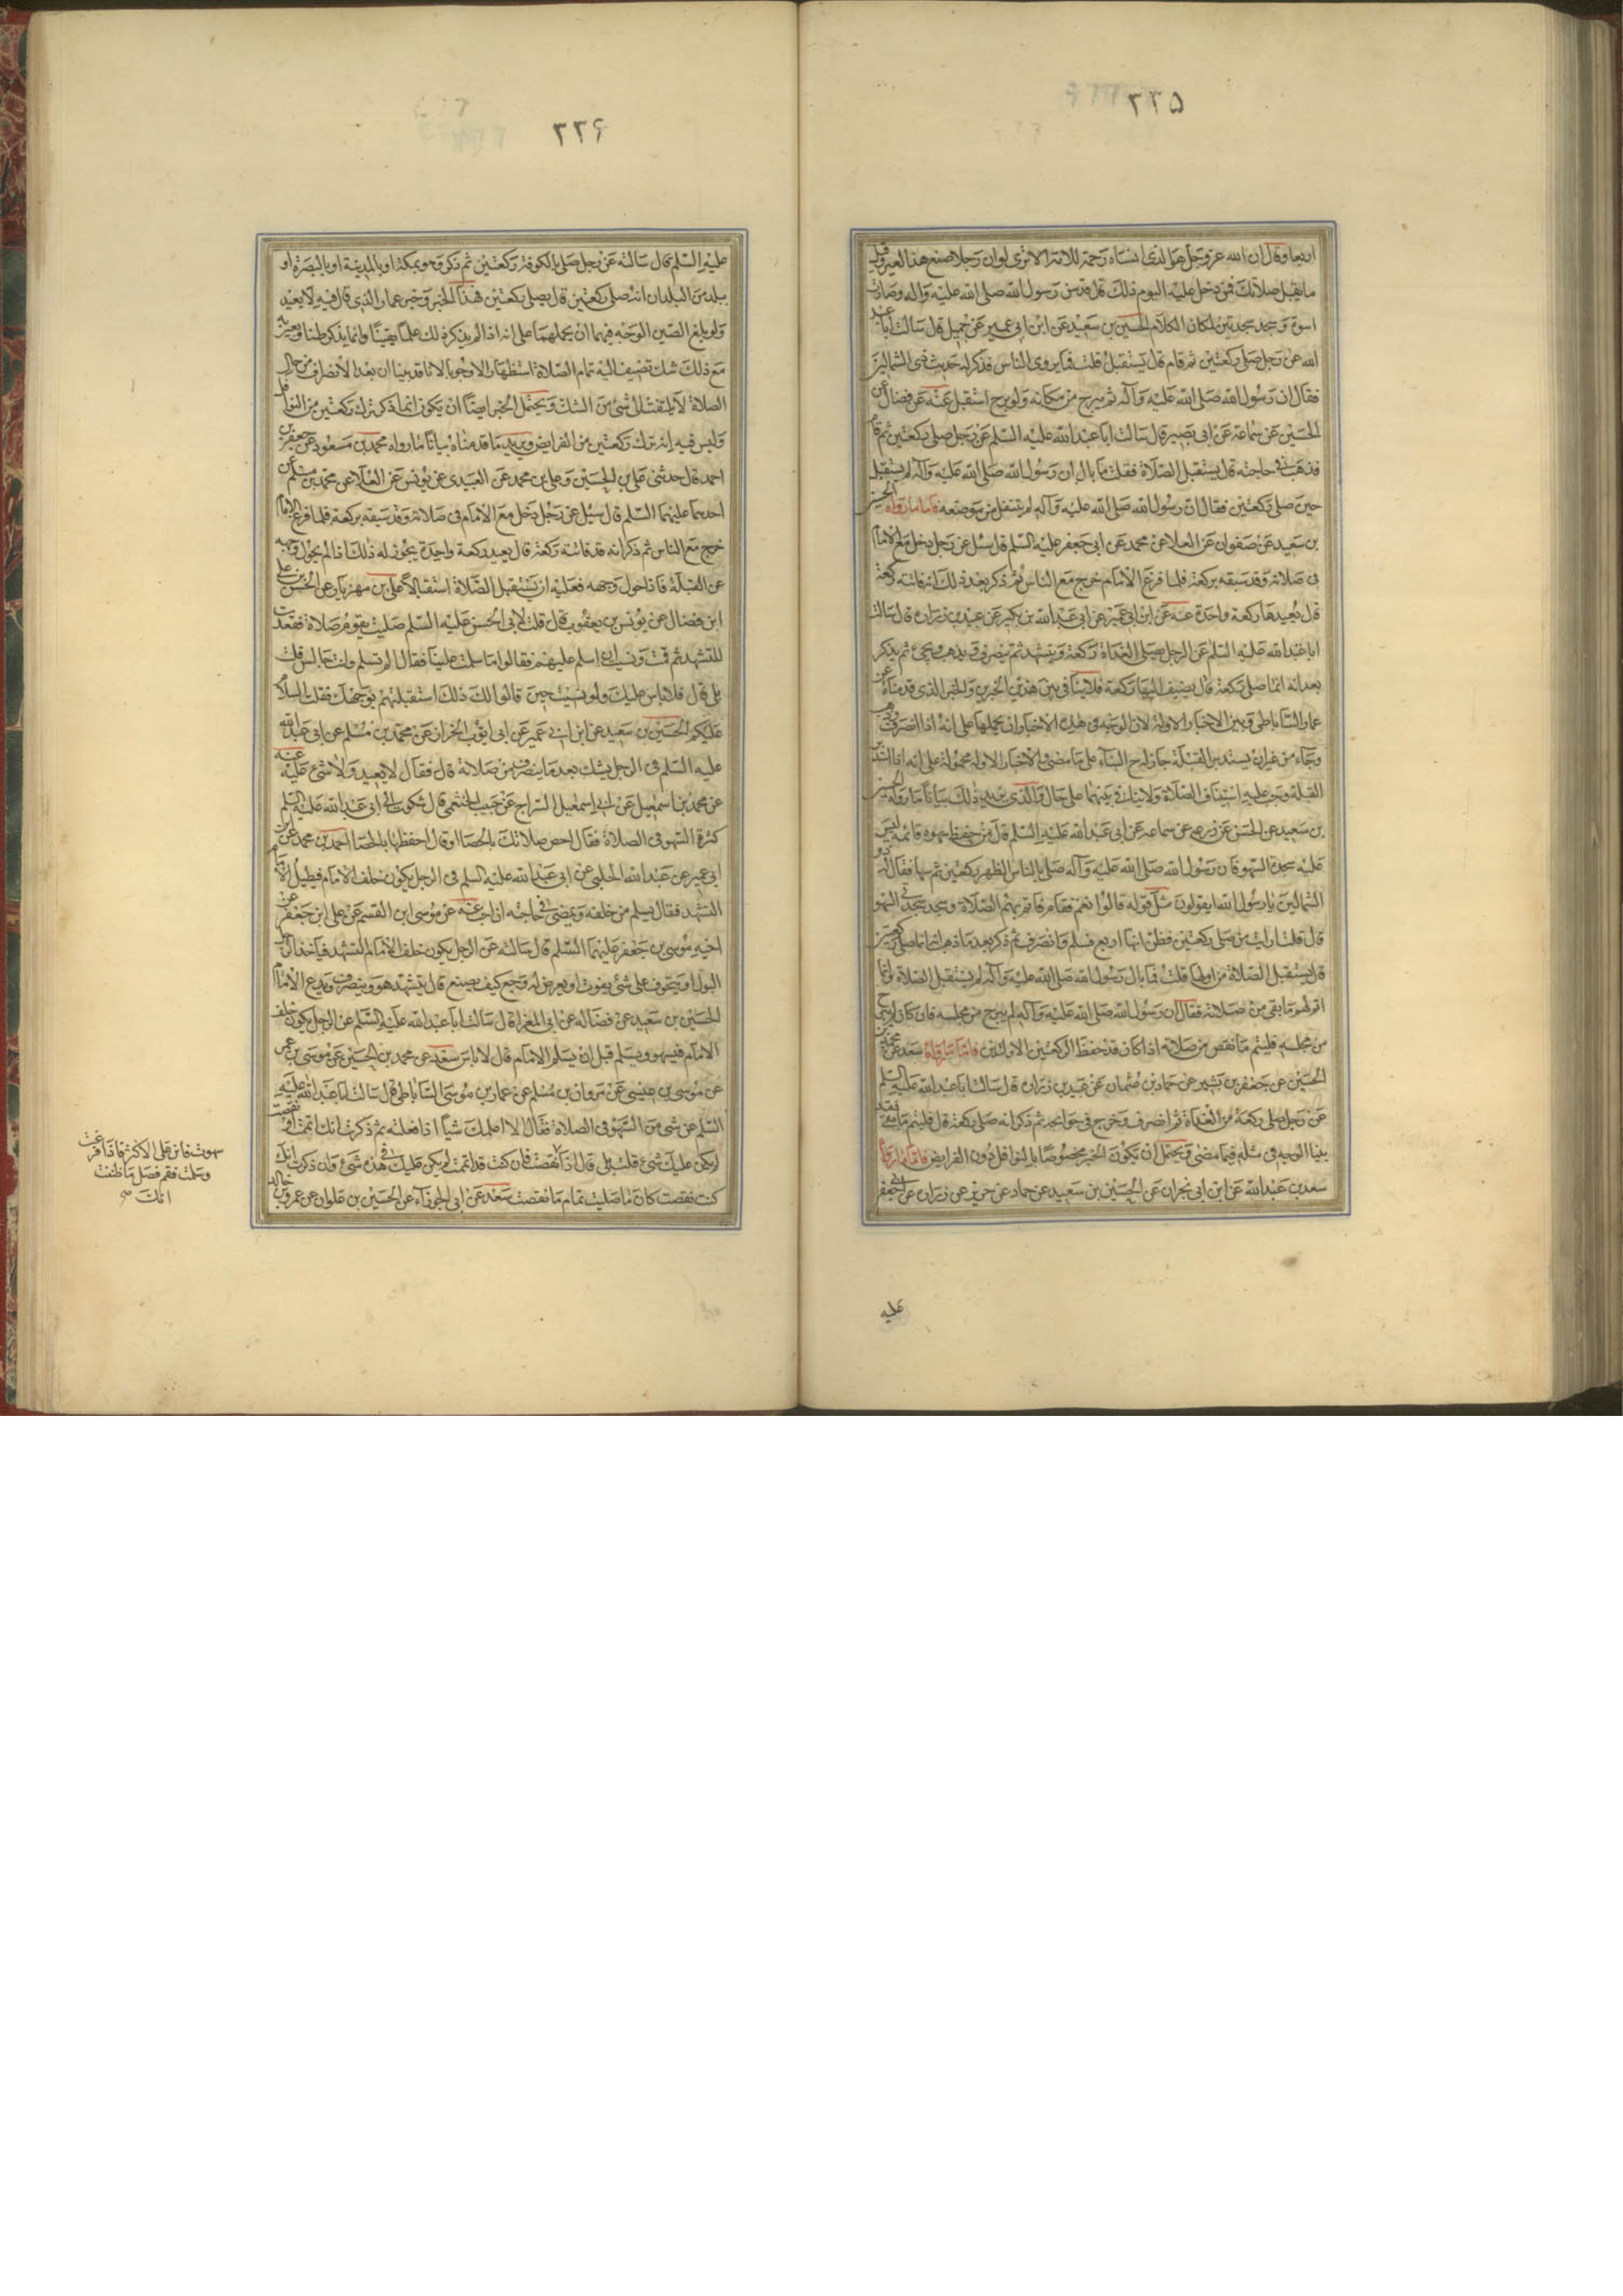 ۳۳۵
اربعا وقال ان الله عزوجل هو الذى انساه رحمة للامة الا ترى لو ان رجلا صنع هذا لعير وقيل
ما يقبل صلاتك فمن دخل عليه اليوم ذلك قال قد سن رسول الله صلى الله عليه واله وصارت
اسوة وسجد سجدتين لمكان الكلام الحسين بن سعيد عن ابن ابى عمير عن جميل قال سالت ابا عبد
الله عن رجل صلى ركعتين ثم قام قال يستقبل قلت فما يروى الناس فذكر له حديث ذى الشمالين
فقال ان رسول الله صلى الله عليه وآله لم يبرح من مكانه ولو برح استقبل عنه عن فضالة عن
الحسين عن سماعة عن ابى بصير قال سالت ابا عبدالله عليه السلم عن رجل صلى ركعتين ثم قام
فذهب فى حاجته قال يستقبل الصلاة فقلت ما بال رسول الله صلى الله عليه وآله لم يستقبل
حين صلى ركعتين فقال ان رسول الله صلى الله عليه وآله لم ينتقل من موضعه فاما ما رواه الحسين
بن سعيد عن صفوان عن العلا عن محمد عن ابى جعفر عليه السلم قال سئل عن رجل دخل مع الامام
فى صلاته وقد سبقه بركعة فلما فرغ الامام خرج مع الناس ثم ذكر بعد ذلك انه فاتته ركعة
قال يعيدها ركعة واحدة عنه عن ابن ابى عمير عن ابى عبدالله بن بكير عن عبيد بن زرارة قال سالت
ابا عبد الله عليه السلم عن الرجل يصلى الغداة ركعة ويتشهد ثم ينصرف ويذهب ويجئ ثم يذكر
بعد انه انما صلى ركعة قال يضيف اليها ركعة فلا ينافى بين هذين الخبرين والخبر الذى قدمناه عن
عمار الساباطى وبين الاخبار الاولة لان الوجه فى هذه الاخبار ان نحملها على انه اذا انصرف
وجاء من غير ان يستدبر القبلة جاز له البناء على ما مضى والاخبار الاوله محمولة على انه اذا استدبر
القبلة وجب عليه استيناف الصلاة ولا تنافى بينهما على حال والذى يبين ذلك بيانا ما رواه الحسين
بن سعيد عن الحسن عن زرعه عن سماعه عن ابى عبد الله عليه السلم قال من حفظ سهوه فاتمه ليس
عليه سجدتا السهو فان رسول الله صلى الله عليه وآله صلى بالناس الظهر ركعتين ثم سها فقال له ذو
الشمالين يا رسول الله يقولون مثل قوله قالوا نعم فقام فاتم بهم الصلاة وسجد سجدتى السهو
قال قلت ارايت من صلى ركعتين فظن انها اربع فسلم وانصرف ثم ذكر بعد ما ذهب انه انما صلى ركعتين
قال يستقبل الصلاة من اولها قلت فما بال رسول الله صلى الله عليه وآله لم يستقبل الصلاة وانما
اتم لهم ما بقى من صلاته فقال ان رسول الله صلى الله عليه وآله لم يبرح من مجلسه فان كان لم يبرح
من مجلسه فليتم ما نقص من صلاته اذا كان قد حفظ الركعتين الاولتين فاما ما رواه سعد عن محمد بن
الحسين عن جعفر بن بشير عن حماد بن عثمان عن عبيد بن زرارة قال سالت ابا عبد الله عليه السلم
عن رجل صلى ركعة من الغداة ثم انصرف وخرج فى حوائجه ثم ذكر انه صلى ركعة قال فليتم ما بقى فقد
بينا الوجه فى مثله فيما مضى ويحتمل ان يكون الخبر مخصوصا بالنوافل دون الفرايض فاما ما رواه
سعد بن عبدالله عن ابن ابى نجران عن الحسين بن سعيد عن حماد عن حريز عن زرارة عن ابى جعفر
عليه
۳۳۶
عليه السلم قال سالته عن رجل صلى بالكوفة ركعتين ثم ذكر وهو بمكة او بالمدينة او بالبصرة او
ببلدة من البلدان انه صلى ركعتين قال يصلى ركعتين هذا الخبر وخبر عمار الذى قال فيه لا يعيد
ولو بلغ الصين الوجه فيهما ان نحملهما على انه اذا لم يذكر ذلك علما يقينا وانما يذكر ظنا ويعتريه
مع ذلك شك تضيف اليه تمام الصلاة استظهارا لا وجوبا لانا قد بينا ان بعد الانصراف من حال
الصلاة لا يلتفت الى شئ من الشك ويحتمل الخبر ايضا ان يكون انما ذكر ترك ركعتين من النوافل
وليس فيه انه ترك ركعتين من الفرايض ويزيد ما قدمناه بيانا ما رواه محمد بن مسعود عن جعفر بن
احمد قال حدثنى على بن الحسين وعلى بن محمد عن العبيدى عن يونس عن العلاء عن محمد بن مسلم عن
احدهما عليهما السلم قال سئل عن رجل دخل مع الامام فى صلاته وقد سبقه بركعة فلما فرغ الامام
خرج مع الناس ثم ذكر انه قد فاتته ركعة قال يعيد ركعة واحدة يجوز له ذلك اذا لم يحول وجهه
عن القبلة فاذا حول وجهه فعليه ان يستقبل الصلاة استقبالا على بن مهزيار عن الحسن بن على
ابن فضال عن يونس بن يعقوب قال قلت لابى الحسن عليه السلم صليت بقوم صلاة فقعدت
للتشهد ثم قمت ونسيت ان اسلم عليهم فقالوا ما سلمت علينا فقال الم تسلم وانت جالس قلت
بلى قال فلا باس عليك ولو نسيت حين قالوا لك ذلك استقبلتهم بوجهك فقلت السلام
عليكم الحسين بن سعيد عن ابن ابى عمير عن ابى ايوب الخزاز عن محمد بن مسلم عن ابى عبد الله
عليه السلم فى الرجل يشك بعد ما ينصرف من صلاته قال فقال لا يعيد ولا شئ عليه عنه
عن محمد بن اسمعيل عن ابى اسمعيل السراج عن حبيب الخثعمى قال شكوت الى ابى عبد الله عليه السلم
كثرة السهو فى الصلاة فقال احص صلاتك بالحصا او قال احفظها بالحصا احمد بن محمد عن ابن
ابى عمير عن عبد الله الحلبى عن ابى عبد الله عليه السلم فى الرجل يكون خلف الامام فيطيل الامام
التشهد فقال يسلم من خلفه ويمضى فى حاجته ان احب عنه عن موسى ابن القسم عن على ابن جعفر عن
اخيه موسى بن جعفر عليهما السلم قال سالته عن الرجل يكون خلف الامام التشهد فياخذ الرجل
البول او يتخوف على شئ يفوت او يعرض له وجع كيف يصنع قال يتشهد هو وينصرف ويدع الامام
الحسين بن سعيد عن فضالة عن ابى المغرا قال سالت ابا عبد الله عليه السلم عن الرجل يكون خلف
الامام فيسهو ويسلم قبل ان يسلم الامام قال لا باس سعد عن محمد بن الحسين عن موسى بن عمر
عن موسى بن عيسى عن مروان بن مسلم عن عمار بن موسى الساباطى قال سالت ابا عبد الله عليه
السلم عن شئ من السهو فى الصلاة فقال الا اعلمك شيا اذا فعلته ثم ذكرت انك اتممت او نقصت
لم يكن عليك شئ قلت بلى قال اذا نقصت فان كنت قد اتممت لم يكن عليك فى هذه شئ وان ذكرت انك
كنت نقصت كان ما صليت تمام ما نقصت سعد عن ابى الجوزاء عن الحسين بن علوان عن عمرو بن خالد
سهوت فابن على الاكثر فاذا فرغت
وسلمت فقم فصل ما ظننت
انك